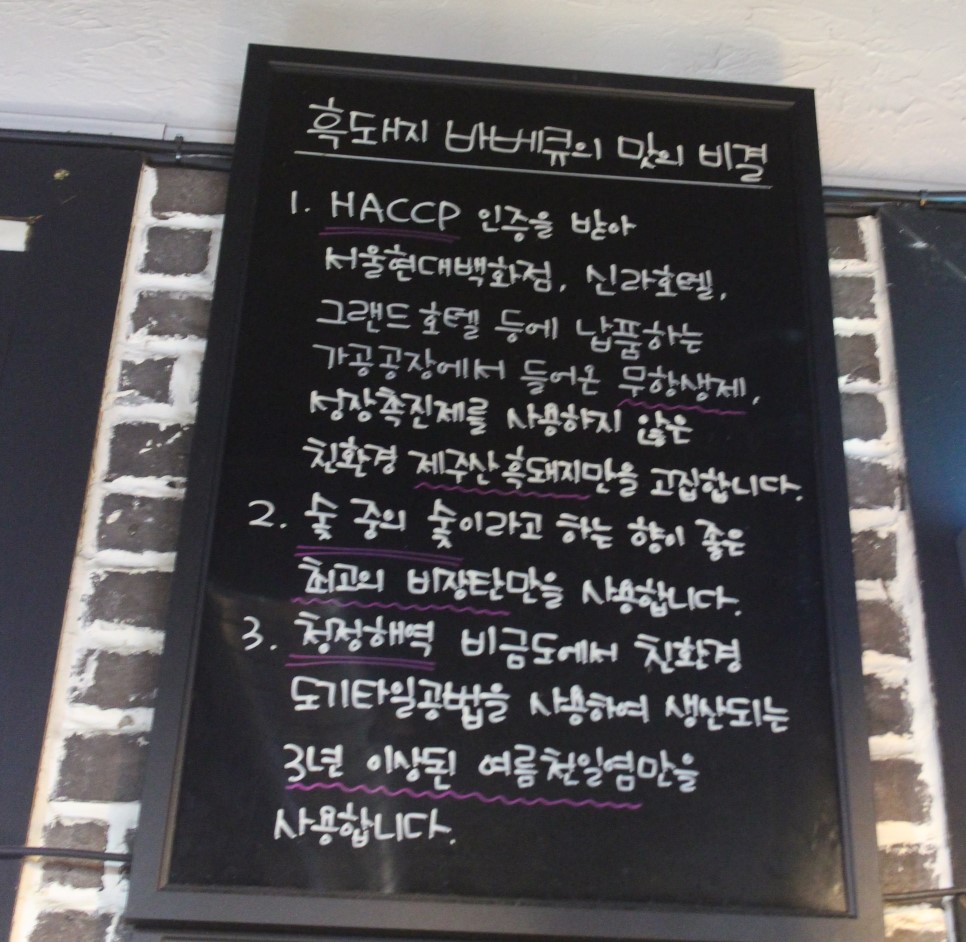 흑돼지 바베큐의 맛의 비결
1. HACCP 인증을 받아
서울현대백화점, 신라호텔,
그랜드호텔 등에 납품하는
가공공장에서 들어온 무항생제,
성장촉진제를 사용하지 않은
친환경 제주산흑돼지만을 고집합니다.
2. 숯 중의 숯이라고 하는 향이 좋은
최고의 비장탄만을 사용합니다.
3. 청정해역 비금도에서 친환경
도기타일공법을 사용하여 생산되는
3년 이상된 여름천일염만을
사용합니다.